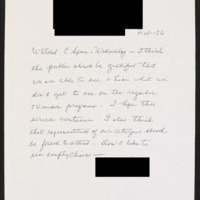 Watched C Span - Wednesday - I think
the public should be grateful that
we are able to see & hear what we
don't get to see on the regular
programs. I hope this
series continues. I also think
that representatives of our
should
be forced to attend - don't like to
see empty chairs -